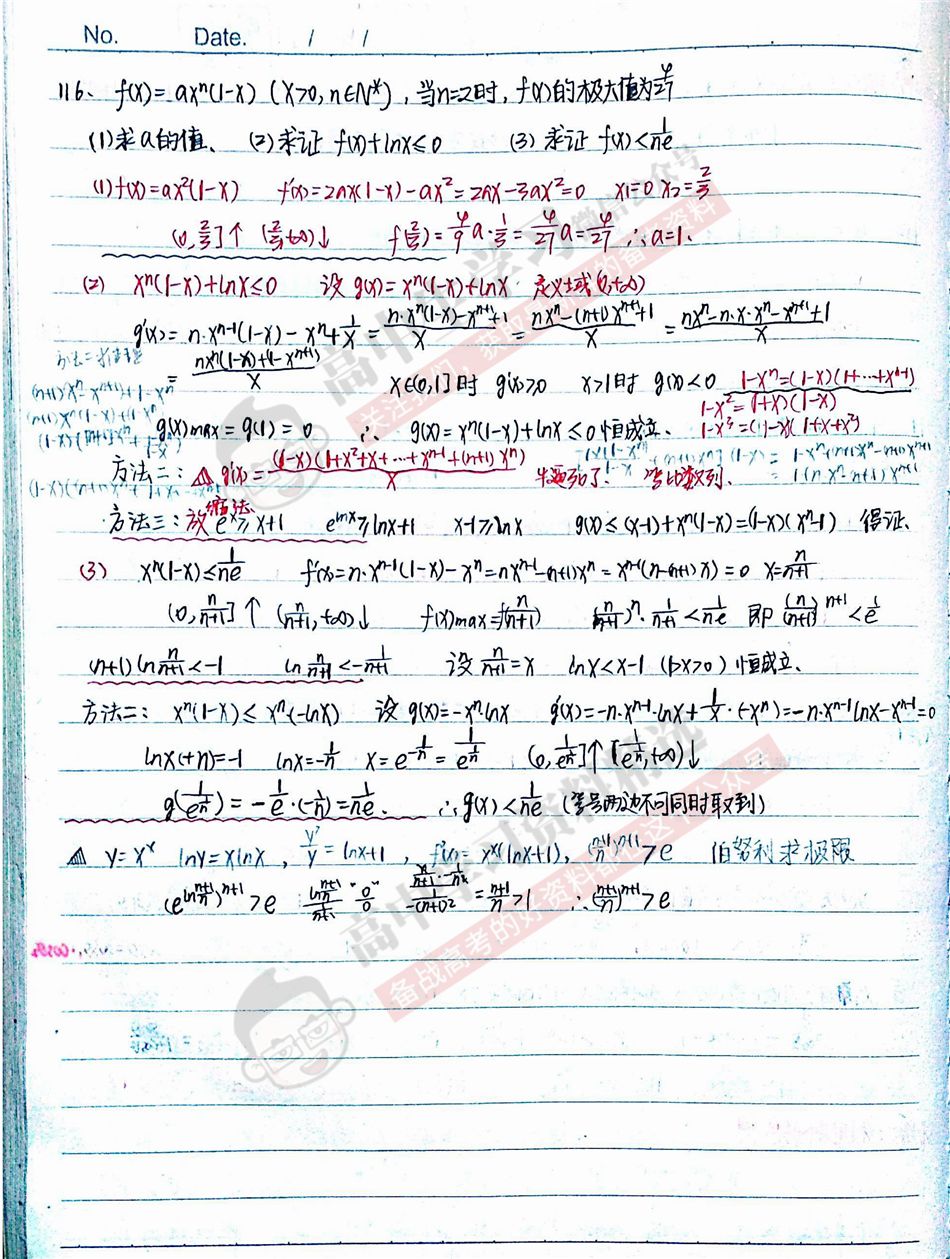 No. Date. / /
116、f(x)=axⁿ(1-x) (x>0,n∈N*),当n=2时,f(x)的极大值为4/27
(1)求a的值、 (2)求证 f(x)+lnx≤0 (3)求证 f(x)<1/ne
(1)f(x)=ax²(1-x) f'(x)=2ax(1-x)-ax²=2ax-3ax²=0 x₁=0 x₂=2/3
(0,2/3]↑ (2/3,+∞)↓ f(2/3)=4/9a·1/3=4/27a=4/27 ∴a=1.
(2) xⁿ(1-x)+lnx≤0 设 g(x)=xⁿ(1-x)+lnx 定义域(0,+∞)
g'(x)=n·xⁿ⁻¹(1-x)-xⁿ+1/x=(n·xⁿ(1-x)-xⁿ⁺¹+1)/x=(nxⁿ-(n+1)xⁿ⁺¹+1)/x=(nxⁿ-n·x·xⁿ-xⁿ⁺¹+1)/x
=(nxⁿ(1-x)+(1-xⁿ⁺¹))/x x∈(0,1]时 g'(x)≥0 x>1时 g'(x)<0 1-xⁿ=(1-x)(1+…+xⁿ⁻¹)
1-x²=(1+x)(1-x)
g(x)max=g(1)=0 ∴ g(x)=xⁿ(1-x)+lnx≤0恒成立、 1-x³=(1-x)(1+x+x²)
方法二: g'(x)=(1-x)(1+x²+x+…+xⁿ⁻¹+(n+1)xⁿ)/x 等比数列.
方法三:放缩法 eˣ≥x+1 e^lnx≥lnx+1 x-1≥lnx g(x)≤(x-1)+xⁿ(1-x)=(1-x)(xⁿ-1) 得证、
(3) xⁿ(1-x)≤1/ne f'(x)=n·xⁿ⁻¹(1-x)-xⁿ=nxⁿ⁻¹-(n+1)xⁿ=xⁿ⁻¹(n-(n+1)x)=0 x=n/(n+1)
(0,n/(n+1)]↑ (n/(n+1),+∞)↓ f(x)max=f(n/(n+1)) (n/(n+1))ⁿ·1/(n+1)<1/ne 即 (n/(n+1))ⁿ⁺¹<1/e
(n+1)ln n/(n+1)<-1 ln n/(n+1)<-1/(n+1) 设 n/(n+1)=x lnx<x-1 (1>x>0)恒成立、
方法二: xⁿ(1-x)≤xⁿ(-lnx) 设 g(x)=-xⁿlnx g'(x)=-n·xⁿ⁻¹·lnx+1/x·(-xⁿ)=-n·xⁿ⁻¹lnx-xⁿ⁻¹=0
lnx(+n)=-1 lnx=-1/n x=e^(-1/n)=1/e^(1/n) (0,1/e^(1/n)]↑ [1/e^(1/n),+∞)↓
g(1/e^(1/n))=-1/e·(-1/n)=1/ne. ∴g(x)<1/ne (等号两边不可同时取到)
y=xˣ lny=xlnx, y'/y=lnx+1, f'(x)=xˣ(lnx+1), ((n+1)/n)ⁿ⁺¹>e 伯努利求极限
(e^ln(n+1)/n)ⁿ⁺¹>e (ln(n+1)/n)/(1/(n+1)) "0/0" =(n+1)/n>1 ∴((n+1)/n)ⁿ⁺¹>e